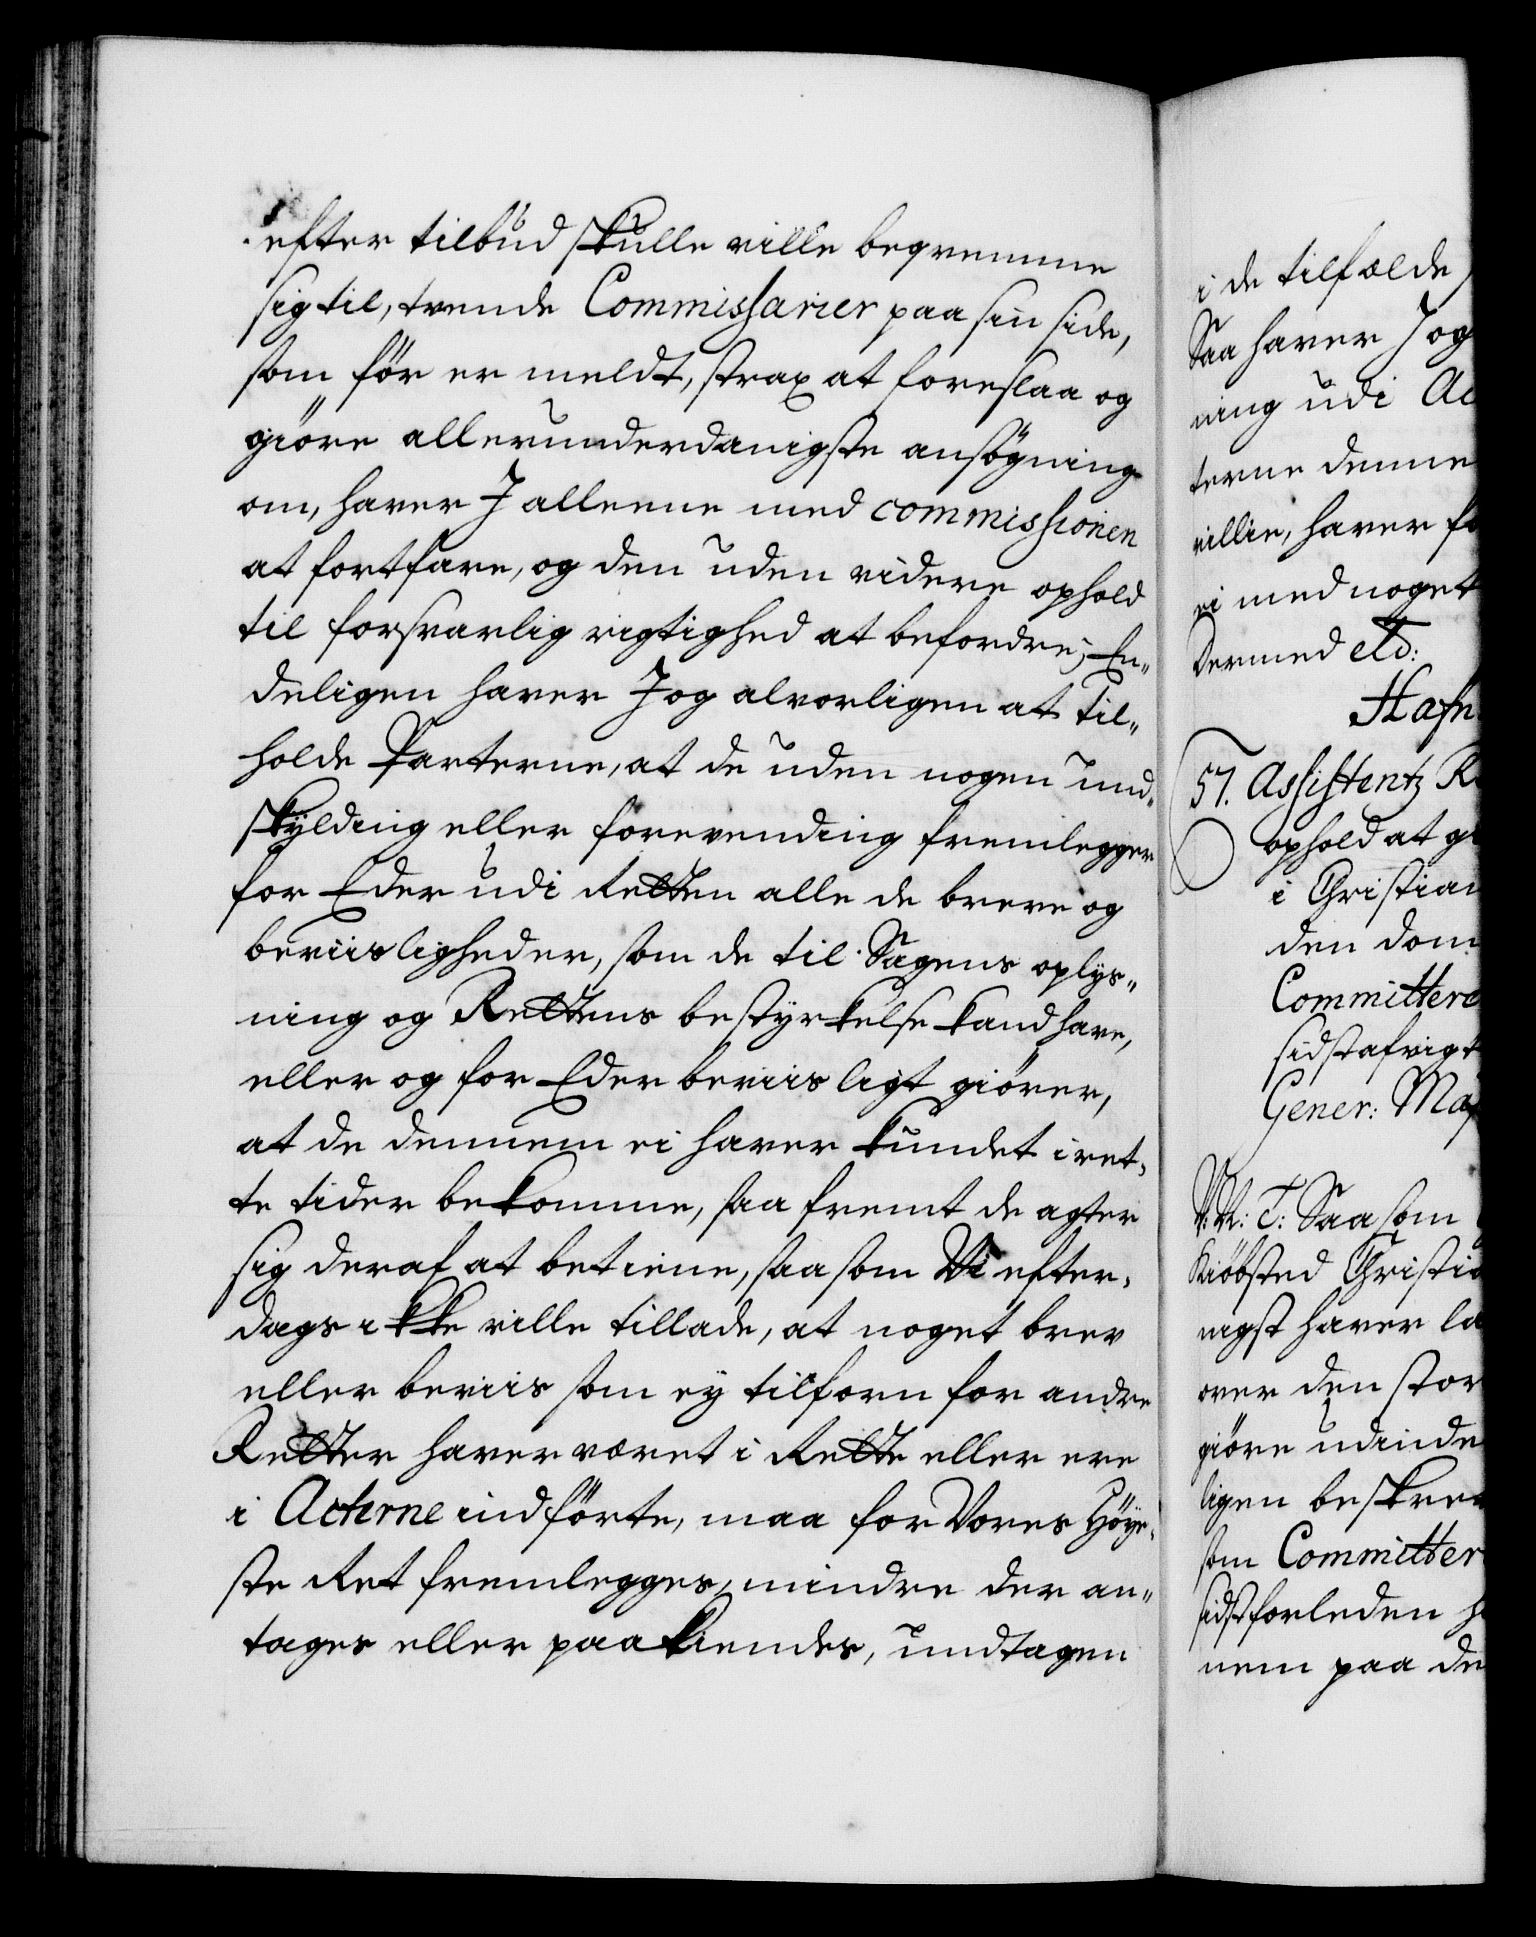 efter tilbud skulle ville beqvemme
sig til, tvende Commissarier paa sin side,
som för er meldt, strax at foreslaa og
giöre allerunderdanigste ansögning
om, haver I alleene med commissionen
at fortfare, og den uden videre ophold
til forsvarlig rigtighed at befordre; En„
deligen haver I og alvorligen at til„
holde Parterne, at de uden nogen und„
skylding eller forevending fremlegger
for Eder udi Retten alle de breve og
beviisligheder, som de til Sagens oplys„
ning og Rettens bestyrkelse kand have,
eller og for Eder beviisligt giörer,
at de dennem ei haver kundet i ret„
te tider bekomme, saa fremt de agter
sig deraf at betiene, saa som Vi efter„
dags ikke ville tillade, at noget brev
eller beviis som ey tilforn for andre
Retter haver været i Rette eller ere
i Acterne indförte, maa for Vores Höye„
ste Ret fremlegges, mindre der an„
tages eller paakiendes, undtagen
i de tilfælde
Saa haver I og
ning udi Ac
terne denne
villie, haver
ei med noget
Dermed etc:
Hafn
57. Assistentz R
ophold at
i Christian
den dom
Committere
sidstafvigt
Gener: Maj
V: T: Saa som
Kiöbsted Christia
nigst haver la
over den stor
giöre udinde
ligen beskrev
som Committer
sidstforleden
nem paa de